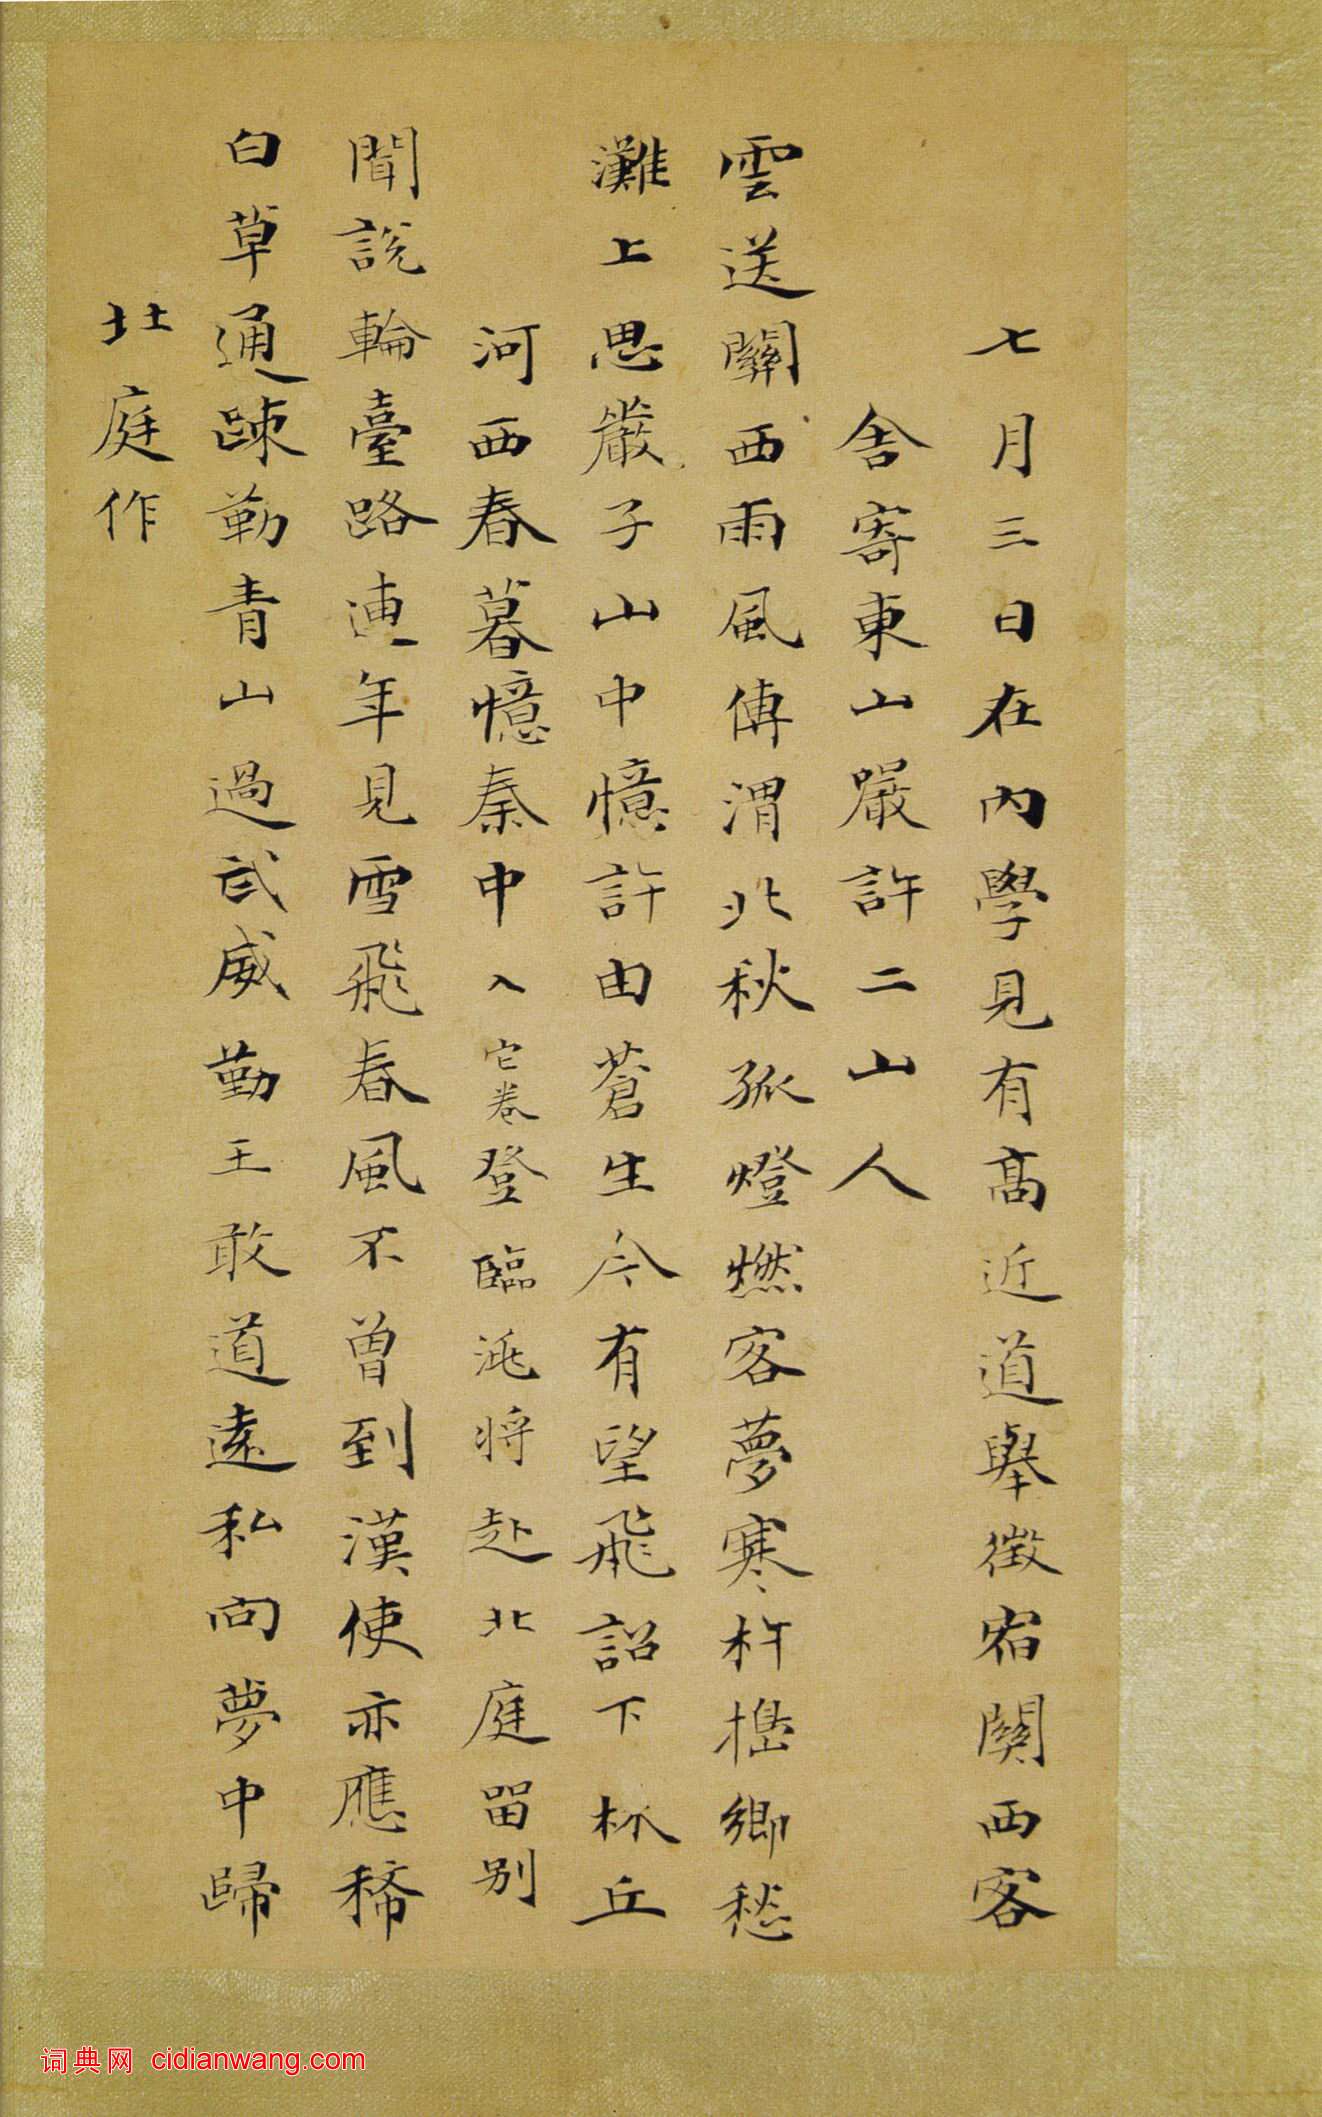 七月三日在內學見有高近道舉徵宿關西客
舍寄東山嚴許二山人
雲送關西雨風傳渭北秋孤燈燃客夢寒杵搗鄉愁
灘上思嚴子山中憶許由蒼生今有望飛詔下林丘
河西春暮憶秦中入它卷登臨洮將赴北庭留別
聞說輪臺路連年見雪飛春風不曾到漢使亦應稀
白草通疎勒青山過武威勤王敢道遠私向夢中歸
北庭作
词典网 cidianwang.com